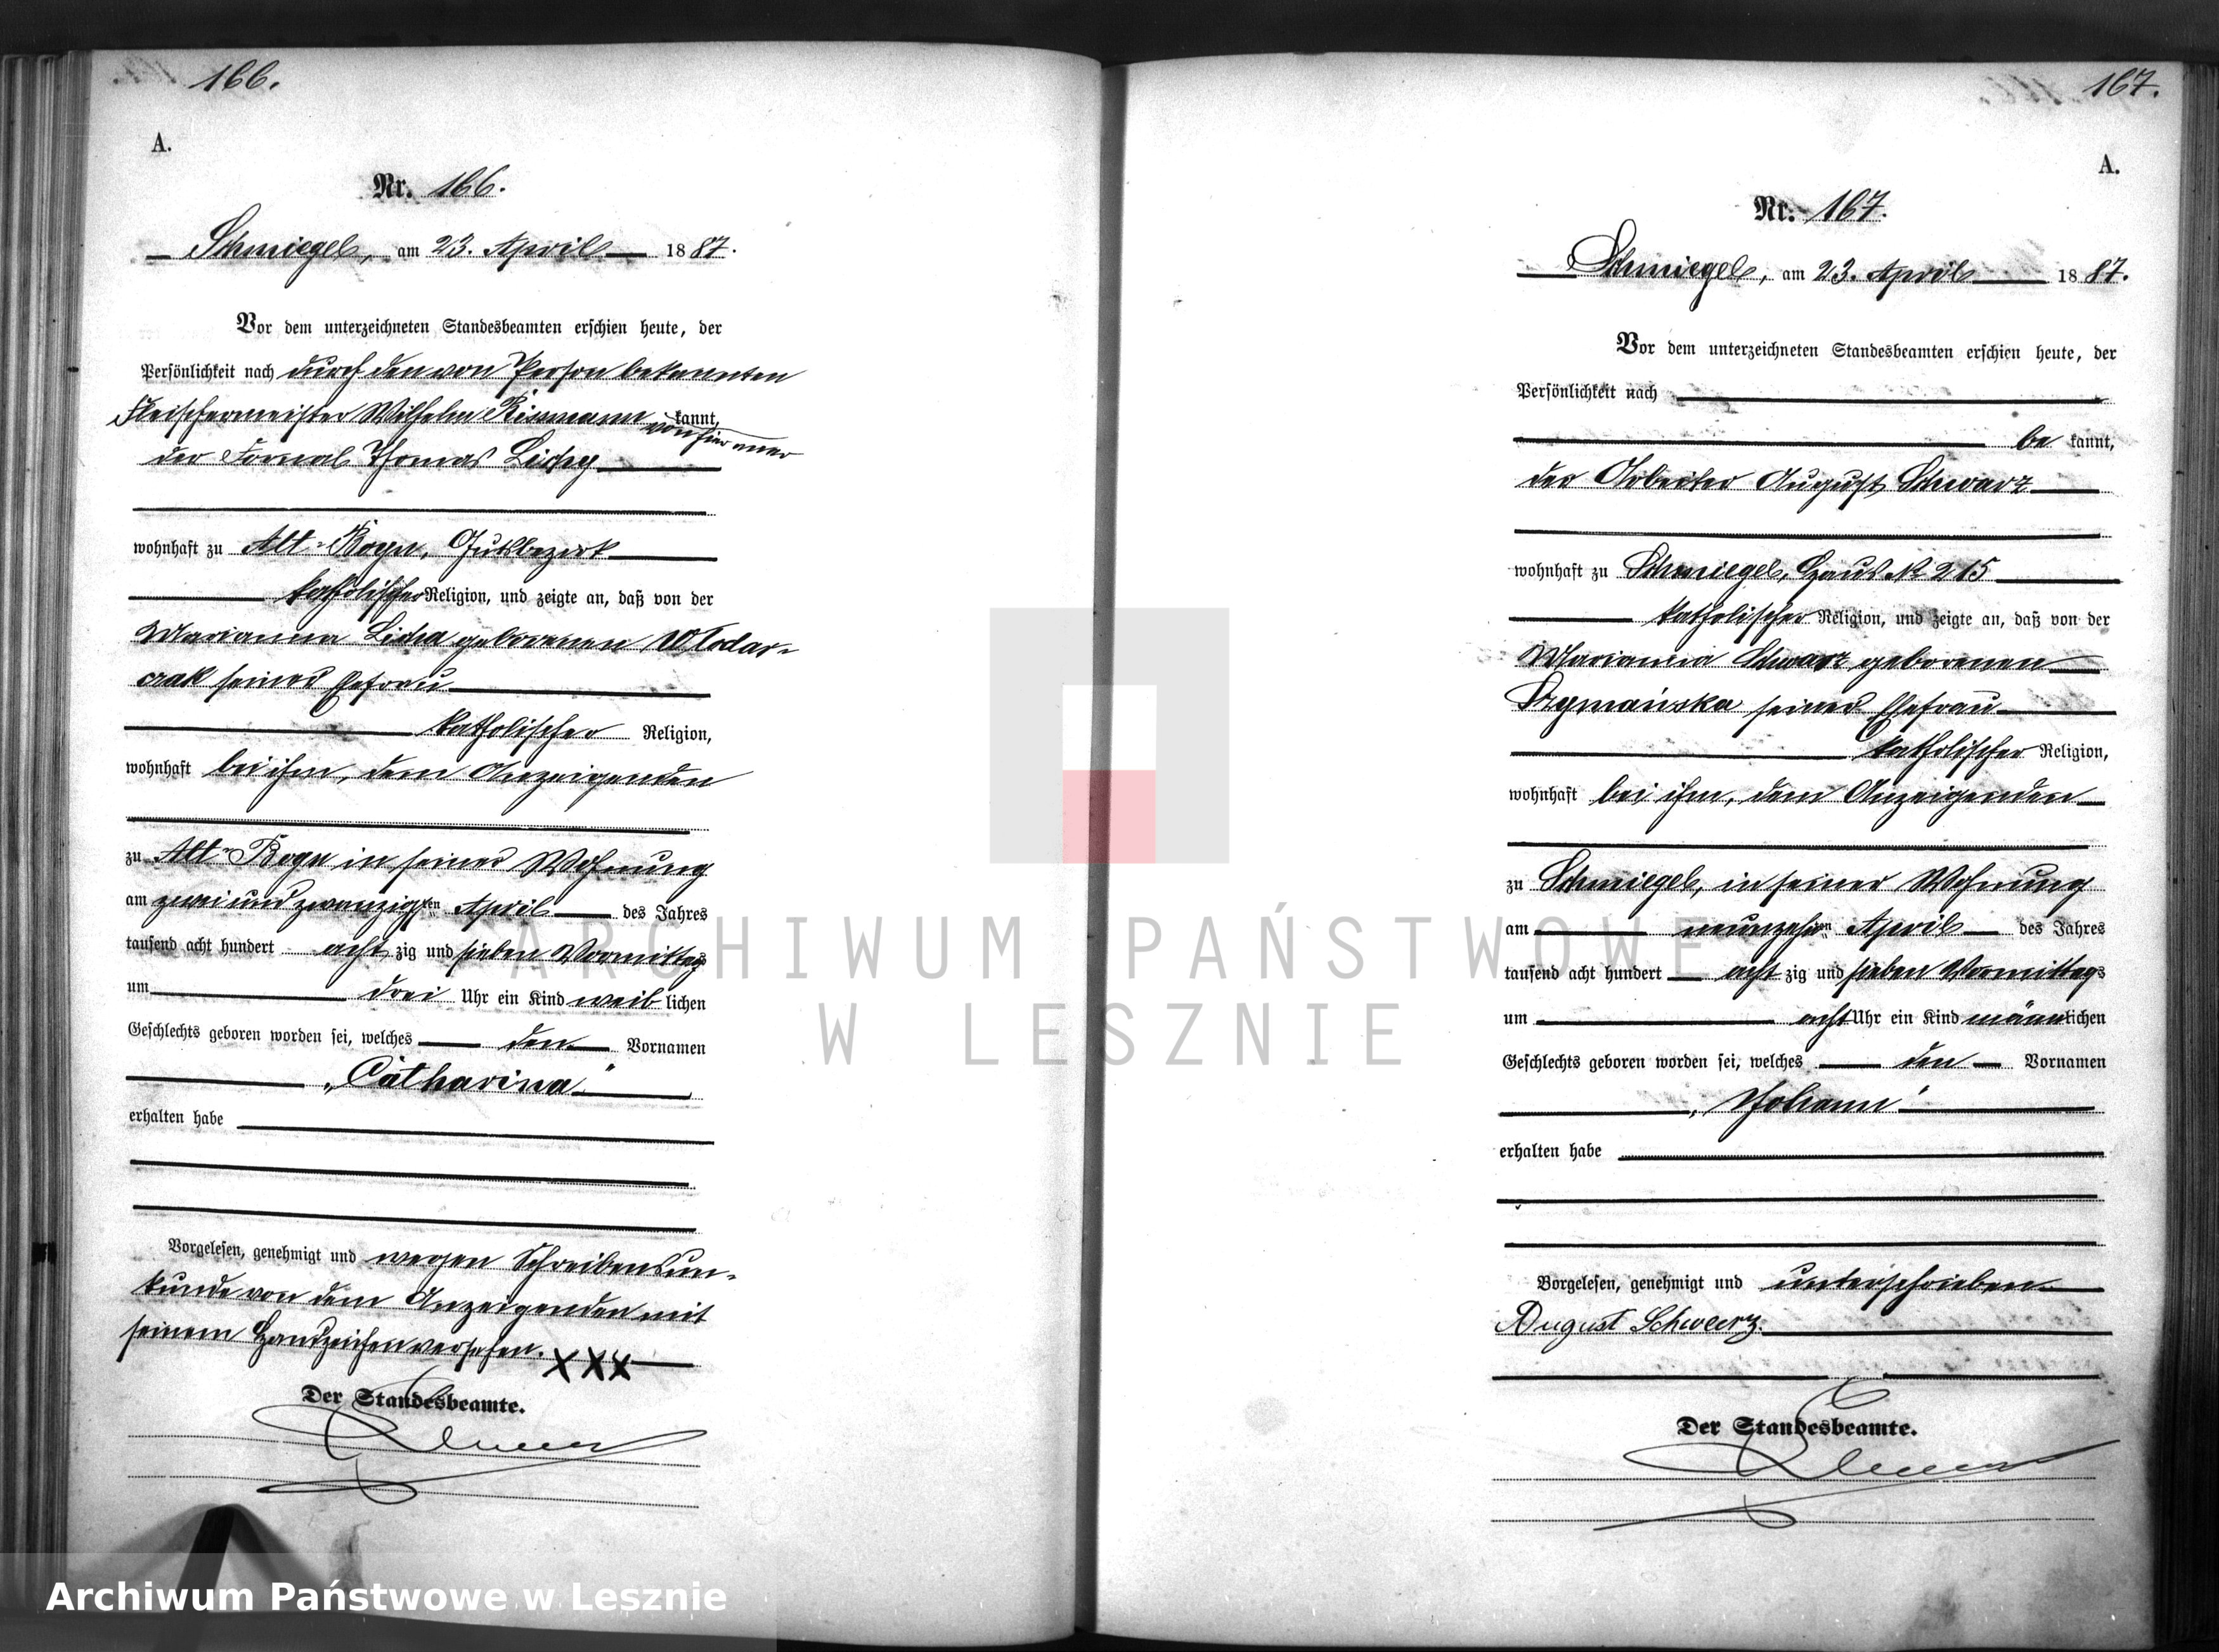 166.
A.
Nr. 166.
Schmiegel, am 23. April 1887.
Vor dem unterzeichneten Standesbeamten erschien heute, der
Persönlichkeit nach durch den von Person bekannten
Fleischermeister Wilhelm von hier aner kannt,
der Fornal Thomas
wohnhaft zu Alt-Boyen, Gutsbezirk
katholischer Religion, und zeigte an, daß von der
Marianna Licha geborenen Wlodar-
czak seiner Ehefrau
katholischer Religion,
wohnhaft bei ihm, dem Anzeigenden
zu Alt-Boyen in seiner Wohnung
am zwei und zwanzigsten April des Jahres
tausend acht hundert acht zig und sieben Vormittags
um drei Uhr ein Kind weib lichen
Geschlechts geboren worden sei, welches den Vornamen
„Catharina"
erhalten habe
Vorgelesen, genehmigt und wegen Schreibensun-
kunde von dem Anzeigenden mit
seinem Handzeichen versehen. XXX
Der Standesbeamte.
167.
A.
Nr. 167.
Schmiegel, am 23. April 1887.
Vor dem unterzeichneten Standesbeamten erschien heute, der
Persönlichkeit nach
be kannt,
der Arbeiter August Schwarz
wohnhaft zu Schmiegel, Haus № 215
katholischer Religion, und zeigte an, daß von der
Marianna Schwarz geborenen
Szymańska seiner Ehefrau
katholischer Religion,
wohnhaft bei ihm, dem Anzeigenden
zu Schmiegel, in seiner Wohnung
am neunzehnten April des Jahres
tausend acht hundert acht zig und sieben Vormittags
um acht Uhr ein Kind männlichen
Geschlechts geboren worden sei, welches den Vornamen
„Johann"
erhalten habe
Vorgelesen, genehmigt und unterschrieben
August Schwarz.
Der Standesbeamte.
ARCHIWUM PAŃSTWOWE
W LESZNIE
Archiwum Państwowe w Lesznie